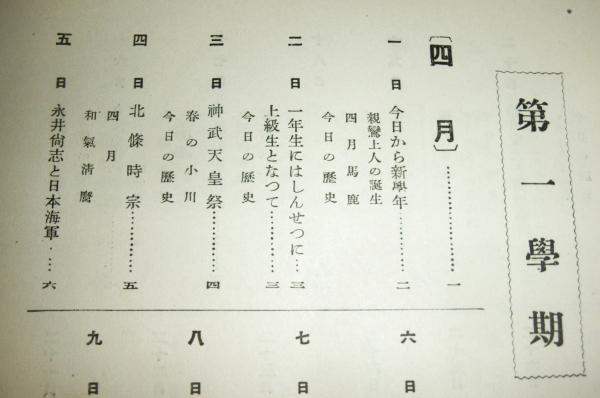 第一學期
〔四月〕…………一
一日 今日から新學年………二
親鸞上人の誕生
四月馬鹿
今日の歷史
二日 一年生にはしんせつに…三
上級生となつて………三
今日の歷史
三日 神武天皇祭………四
春の小川
今日の歷史
四日 北條時宗…………五
四月
和氣淸麿
五日 永井尙志と日本海軍‥‥六
六日
七日
八日
九日